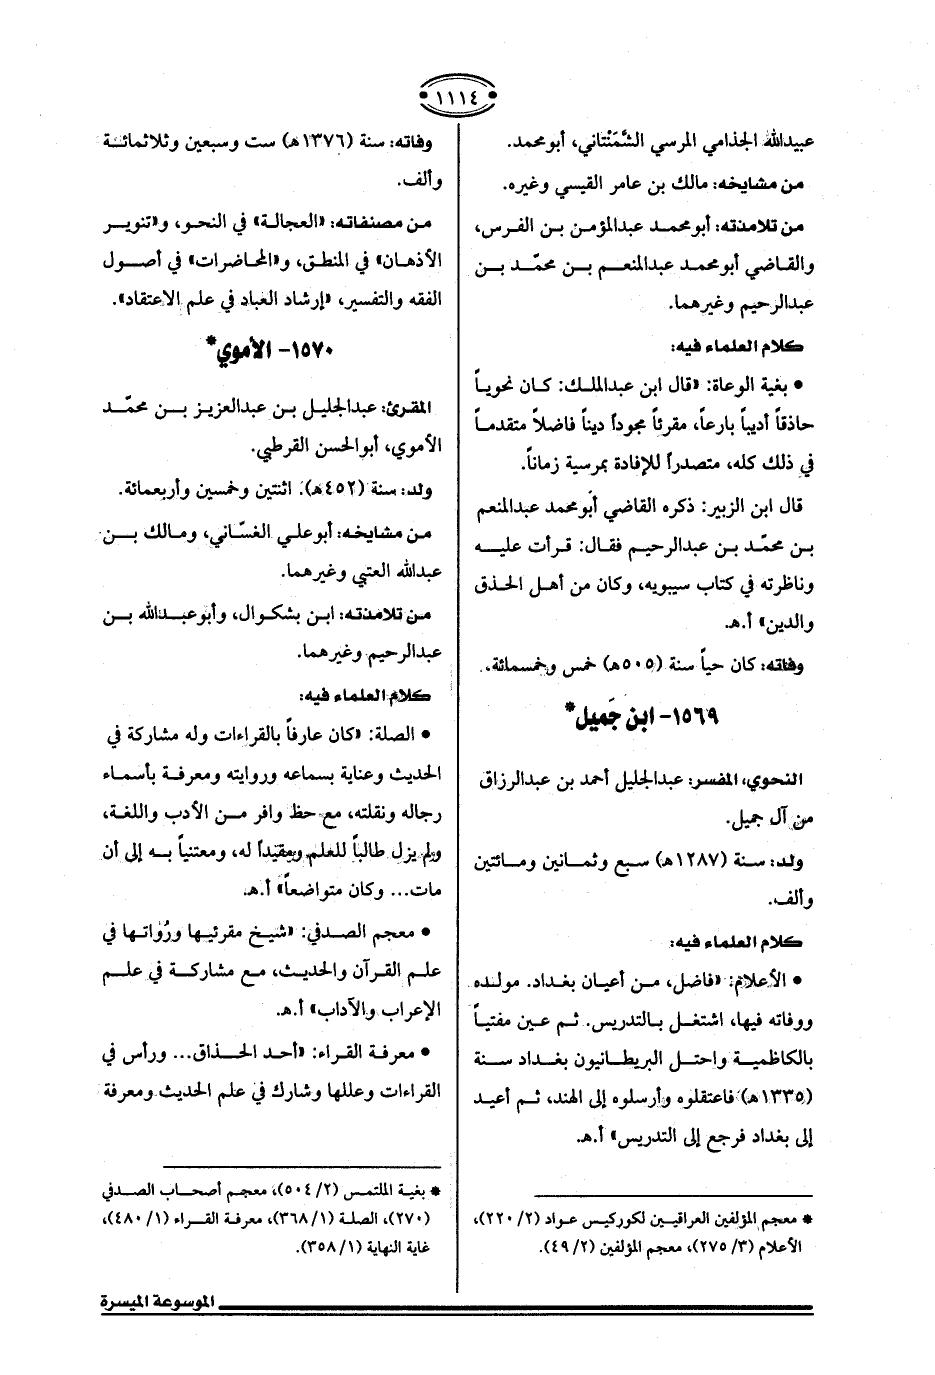 ١١١٤
عبيدالله الجذامي المرسي الشَّمَنْتاني، أبومحمد.
من مشايخه: مالك بن عامر القيسي وغيره.
من تلامذته: أبومحمد عبدالمؤمن بن الفرس،
والقاضي أبومحمد عبدالمنعم بن محمّد بن
عبدالرحيم وغيرهما.
كلام العلماء فيه:
• بغية الوعاة: «قال ابن عبدالملك: كان نحوياً
حاذقاً أديباً بارعاً، مقرئاً مجوداً ديناً فاضلاً متقدماً
في ذلك كله، متصدراً للإفادة بمرسية زماناً.
قال ابن الزبير: ذكره القاضي أبومحمد عبدالمنعم
بن محمّد بن عبدالرحيم فقال: قرأت عليه
وناظرته في كتاب سيبويه، وكان من أهل الحذق
والدين» أ.هـ.
وفاته: كان حياً سنة (٥٠٥هـ) خمس وخمسمائة.
١٥٦٩- ابن جَميل*
النحوي، المفسر: عبدالجليل أحمد بن عبدالرزاق
من آل جميل.
ولد: سنة (١٢٨٧هـ) سبع وثمانين ومائتين
وألف.
كلام العلماء فيه:
• الأعلام: «فاضل، من أعيان بغداد. مولده
ووفاته فيها، اشتغل بالتدريس. ثم عين مفتياً
بالكاظمية واحتل البريطانيون بغداد سنة
(١٣٣٥هـ) فاعتقلوه وأرسلوه إلى الهند، ثم أعيد
إلى بغداد فرجع إلى التدريس» أ.هـ.
* معجم المؤلفين العراقيين لكوركيس عواد (٢/ ٢٢٠)،
الأعلام (٣/ ٢٧٥)، معجم المؤلفين (٢/ ٤٩).
وفاته: سنة (١٣٧٦هـ) ست وسبعين وثلاثمائة
وألف.
من مصنفاته: «العجالة» في النحو، و«تنوير
الأذهان» في المنطق، و«المحاضرات» في أصول
الفقه والتفسير، «إرشاد العباد في علم الاعتقاد».
١٥٧٠- الأموي*
المقرئ: عبدالجليل بن عبدالعزيز بن محمّد
الأموي، أبوالحسن القرطبي.
ولد: سنة (٤٥٢هـ). اثنتين وخمسين وأربعمائة.
من مشايخه: أبوعلي الغسّاني، ومالك بن
عبدالله العتبي وغيرهما.
من تلامذته: ابن بشكوال، وأبوعبدالله بن
عبدالرحيم وغيرهما.
كلام العلماء فيه:
• الصلة: «كان عارفاً بالقراءات وله مشاركة في
الحديث وعناية بسماعه وروايته ومعرفة بأسماء
رجاله ونقلته، مع حظ وافر من الأدب واللغة،
ولم يزل طالباً للعلم ومقيداً له، ومعتنياً به إلى أن
مات... وكان متواضعاً» أ.هـ.
• معجم الصدفي: «شيخ مقرئيها ورُواتها في
علم القرآن والحديث، مع مشاركة في علم
الإعراب والآداب» أ.هـ.
• معرفة القراء: «أحد الحذاق... ورأس في
القراءات وعللها وشارك في علم الحديث ومعرفة
* بغية الملتمس (٢/ ٥٠٤)، معجم أصحاب الصدفي
(٢٧٠)، الصلة (١/ ٣٦٨)، معرفة القراء (١/ ٤٨٠)،
غاية النهاية (١/ ٣٥٨).
الموسوعة الميسرة